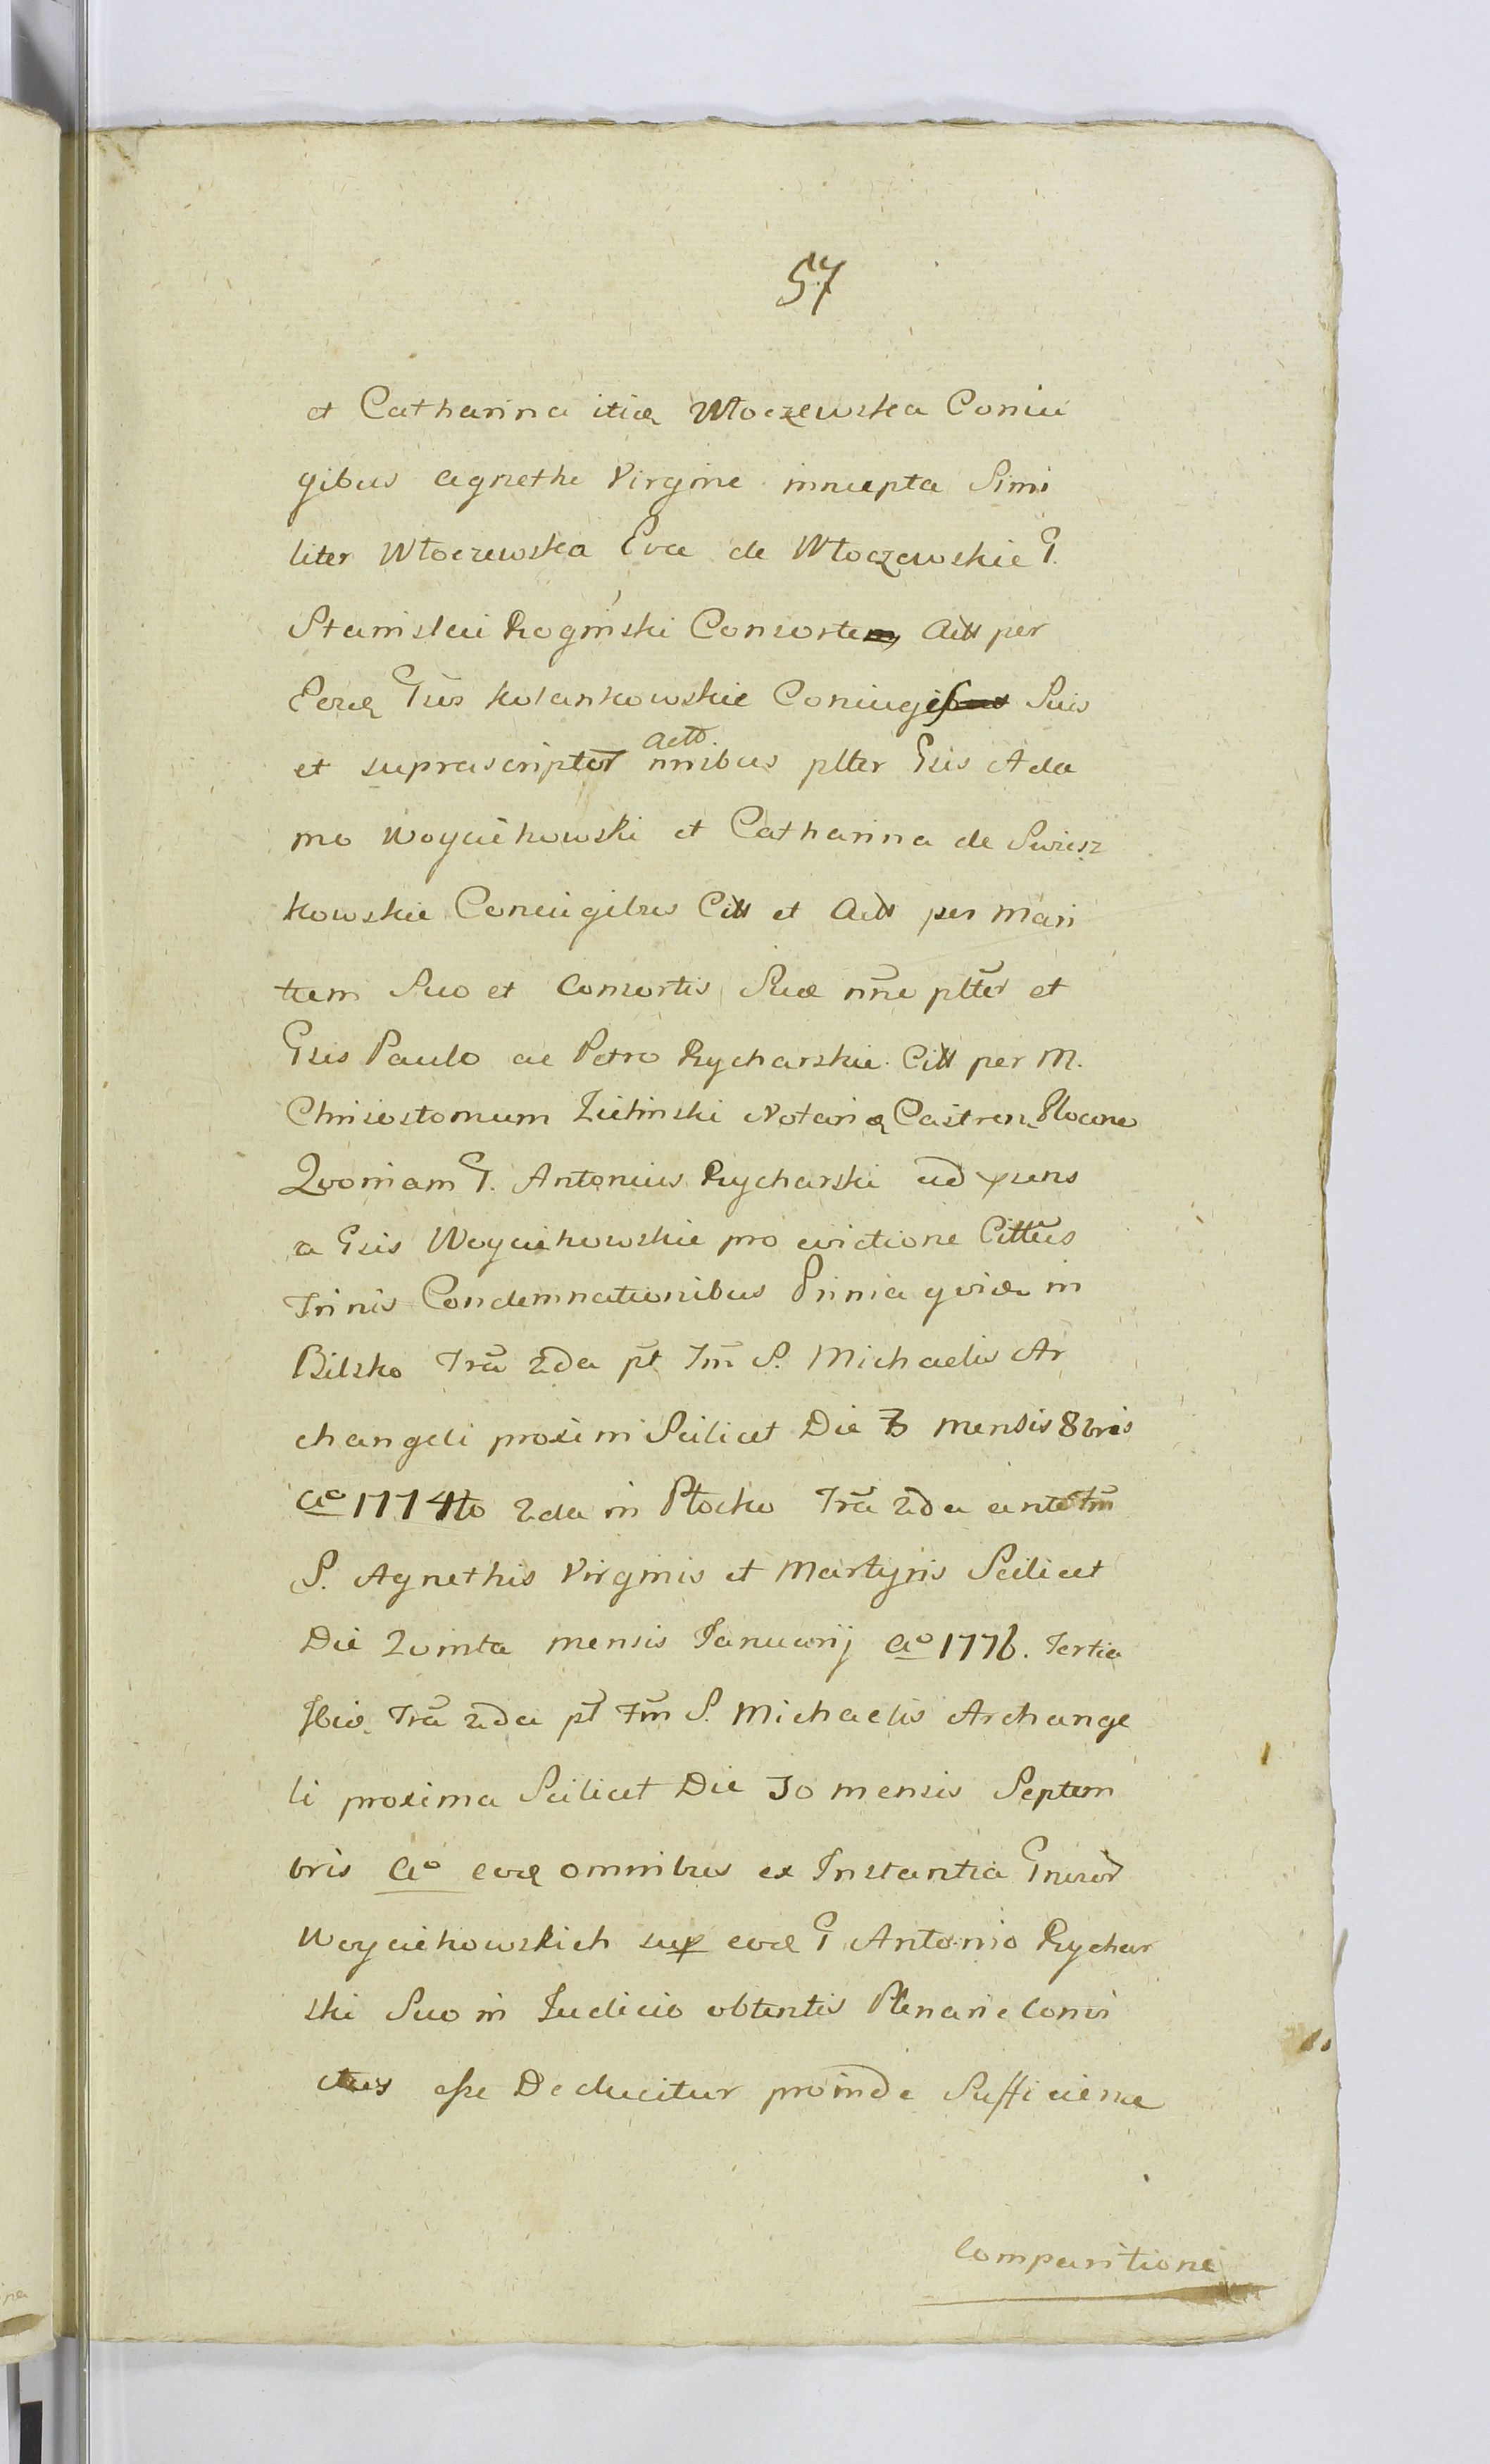 57
et Catharina itid Włoczewska Coniu
gibus Agnethe Virgine innupta Simi
liter Włoczewska Eva de Włoczewskie G.
Stanislai Rogiński Consorte Actt per
Eosd Gūs Kolankowskie Coniuges Suis
et suprascriptor Actt. nnibus pltter Gsis Ada
mo Woyciechowski et Catharina de Swiesz
kowskie Coniugibus Citt et Actt per Mari
tum Suo et Consortis Suæ nn̄e pltt̄er et
Gsis Paulo ac Petro Rycharskie Citt per M.
Chrisostomum Zieliński Notariq Castren Plocen
Qvoniam G. Antonius Rycharski ad pnns
a Gsis Woyciechowskie pro evictione Citt̄us
Trinis Condemnationibus Prima qvid in
Bilsko Fr̄a 2da pt Fm̄ S. Michaelis Ar
changeli proximi Scilicet Die 3 Mensis 8bris
Ao 1774to 2da in Płocko Fr̄a 2da ante Fm̄
S. Agnethis Virginis et Martyris Scilicet
Die Qvinta Mensis Januarij Ao 1776. Tertia
Ibid. Fr̄a 2da pt Fm̄ S. Michaelis Archange
li proxima Scilicet Die 30 mensis Septem
bris Ao eod omnibus ex Instantia Gnēror
Woyciechowskich sup eod G Antonio Rychar
ski Suo in Judicio obtentis Plenarie Convi
ctus esse Deducitur proinde Sufficiene
Comparitione